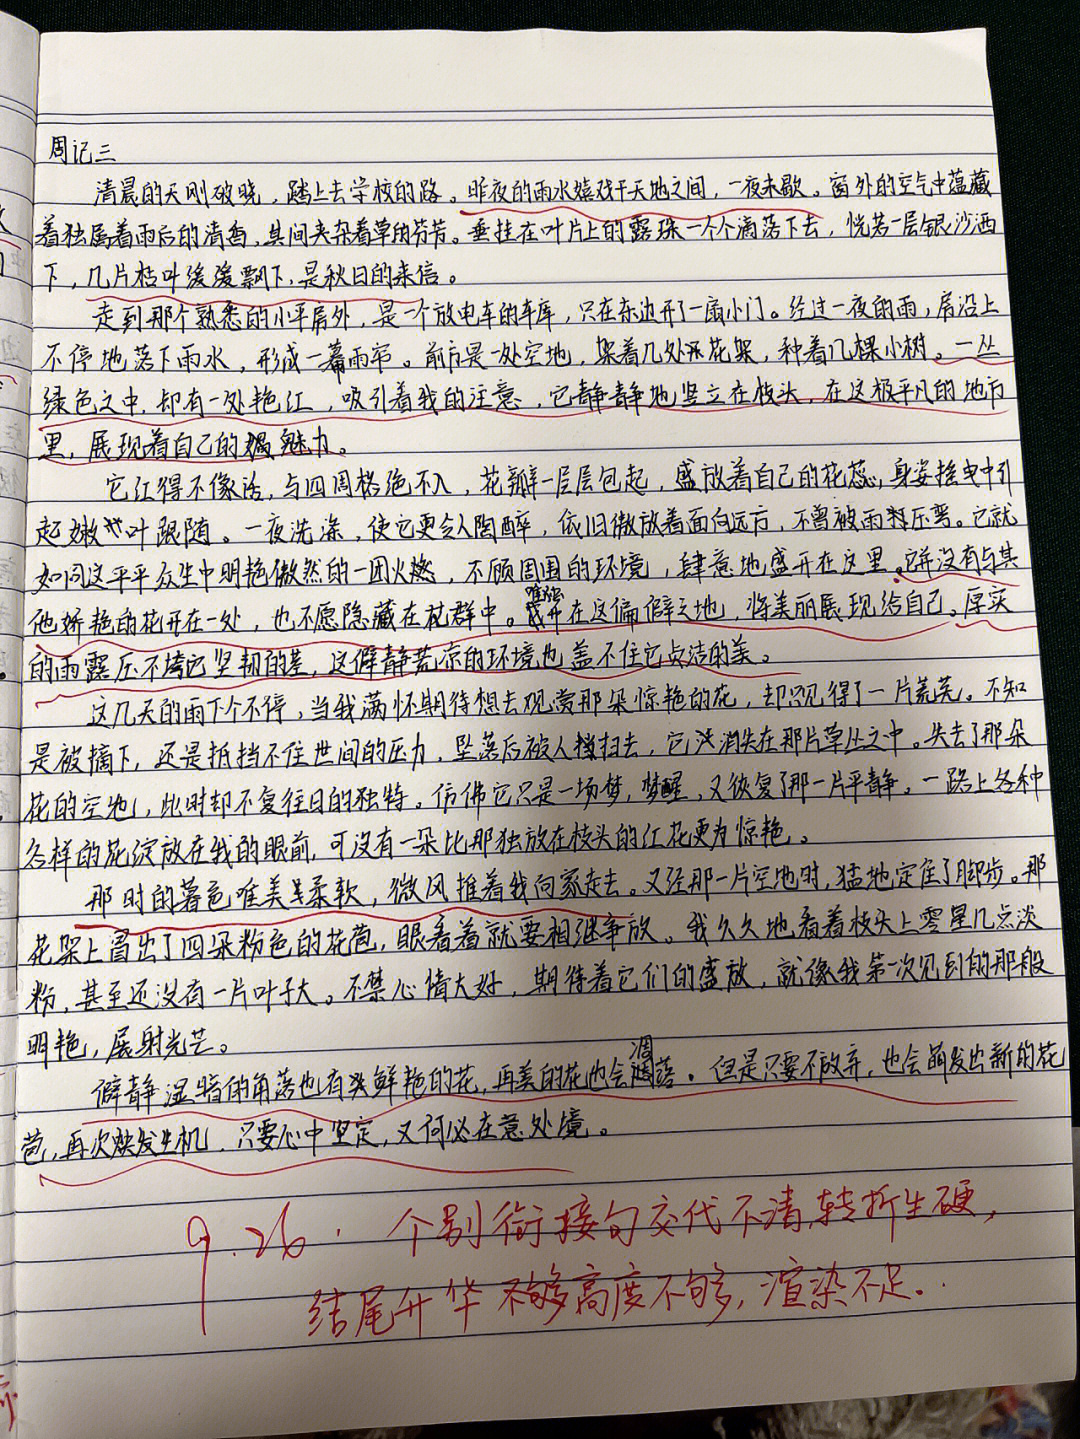 周记三
清晨的天刚破晓，踏上去学校的路。昨夜的雨水嬉戏于天地之间，一夜未歇。窗外的空气中蕴藏
着独属着雨后的清香，其间夹杂着草的芬芳。垂挂在叶片上的露珠一个个滴落下去，恍若一层银沙洒
下，几片枯叶缓缓飘下，是秋日的来信。
走到那个熟悉的小平房外，是一个放电车的车库，只在东边开了一扇小门。经过一夜的雨，房沿上
不停地落下雨水，形成一幕雨帘。前方是一处空地，架着几处花架，种着几棵小树。一丛
绿色之中，却有一处艳红，吸引着我的注意，它静静地竖立在枝头，在这极平凡的地方
里，展现着自己的魅力。
它红得不像话，与四周格格不入，花瓣一层层包起，盛放着自己的花蕊，身姿摇曳中引
起嫩叶跟随。一夜洗涤，使它更令人陶醉，依旧傲放着面向远方，不曾被雨打压弯。它就
如同这平平众生中明艳傲然的一团火燃，不顾周围的环境，肆意地盛开在这里。它并没有与其
他娇艳的花开在一处，也不愿隐藏在花群中。唯独开在这偏僻之地，将美丽展现给自己。厚实
的雨露压不垮它坚韧的茎，这僻静荒凉的环境也盖不住它点洁的美。
这几天的雨下个不停，当我满怀期待想去观赏那朵惊艳的花，却只见得了一片荒芜。不知
是被摘下，还是抵挡不住世间的压力，坠落后被人扫去，它消失在那片草丛之中。失去了那朵
花的空地，此时却不复往日的独特。仿佛它只是一场梦，梦醒，又恢复了那一片平静。一路上各种
各样的花绽放在我的眼前，可没有一朵比那独放在枝头的红花更为惊艳。
那时的暮色唯美柔软，微风推着我向家走去。又经那一片空地时，猛地定住了脚步。那
花架上冒出了四朵粉色的花苞，眼看着就要相继争放。我久久地看着枝头上零星几点淡
粉，甚至还没有一片叶子大。不禁心情大好，期待着它们的盛放，就像我第一次见到的那般
明艳，展射光芒。
僻静湿暗的角落也有鲜艳的花，再美的花也会凋落。但是只要不放弃，也会萌发出新的花
苞，再次焕发生机，只要心中坚定，又何必在意处境。
9.26. 个别衔接句交代不清，转折生硬，
结尾升华不够高度不够，渲染不足.